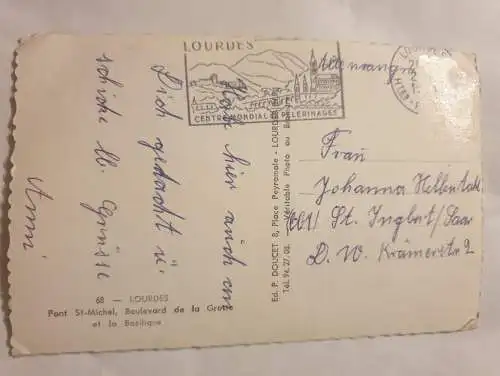 LOURDES
CENTRE MONDIAL DE PELERINAGES
Allemagne
Hab hier auch an
Dich gedacht u.
schicke lb. Grüsse
Anni
Frau
Johanna
St. Ingbert/Saar
D. W. Krämerstr 2
Ed. P. DOUCET 8, Place Peyramale - LOURDES
Tél. 94.27.08. Véritable Photo au
68 — LOURDES
Pont St-Michel, Boulevard de la Grotte
et la Basilique